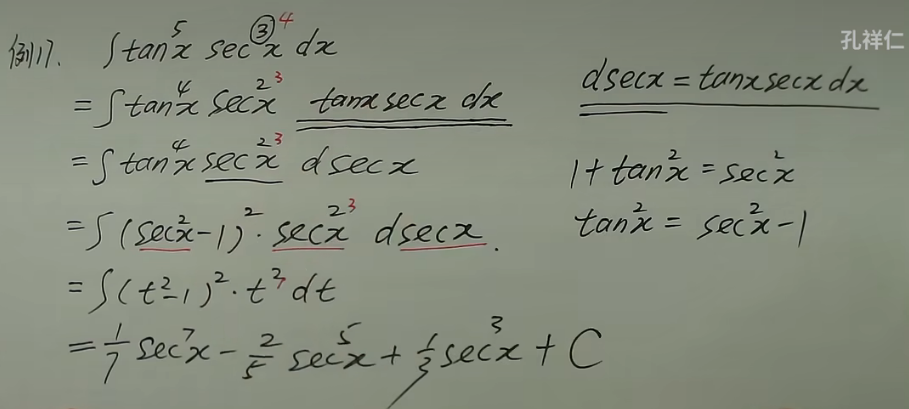 例17. ∫tan⁵x sec³x dx 4
= ∫tan⁴x sec²x tanx secx dx 3
= ∫tan⁴x sec²x dsecx 3
= ∫(sec²x-1)²·sec²x dsecx. 3
= ∫(t²-1)²·t² dt 3
= 1/7 sec⁷x - 2/5 sec⁵x + 1/3 sec³x + C
孔祥仁
dsecx = tanxsecx dx
1+tan²x = sec²x
tan²x = sec²x-1